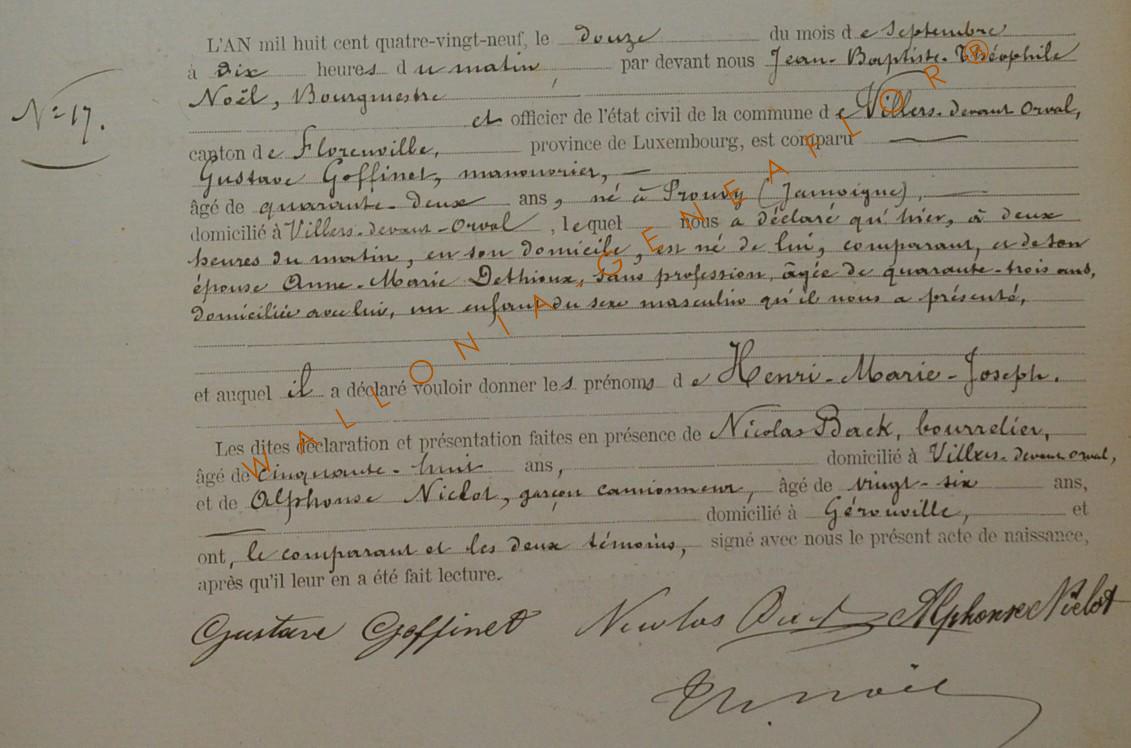 L'AN mil huit cent quatre-vingt-neuf, le douze du mois de Septembre
à dix heures du matin, par devant nous Jean-Baptiste-Théophile
Noël, Bourgmestre
N° 17.
et officier de l'état civil de la commune de Villers-devant-Orval,
canton de Florenville, province de Luxembourg, est comparu
Gustave Goffinet, manouvrier,
âgé de quarante-deux ans, né à Prouvy (Jamoigne),
domicilié à Villers-devant-Orval, lequel nous a déclaré qu'hier, à deux
heures du matin, en son domicile, est né de lui, comparant, et de son
épouse Anne-Marie Dethioux, sans profession, âgée de quarante-trois ans,
domiciliée avec lui, un enfant du sexe masculin qu'il nous a présenté,
et auquel il a déclaré vouloir donner les prénoms de Henri-Marie-Joseph.
Les dites déclaration et présentation faites en présence de Nicolas Back, bourrelier,
âgé de cinquante-huit ans, domicilié à Villers-devant-Orval,
et de Alphonse Niclot, garçon camionneur, âgé de vingt-six ans,
domicilié à Gérouville, et
ont, le comparant et les deux témoins, signé avec nous le présent acte de naissance,
après qu'il leur en a été fait lecture.
Gustave Goffinet Nicolas Alphonse Niclot
Th. Noël
WALLONIA GENEAFLOR®